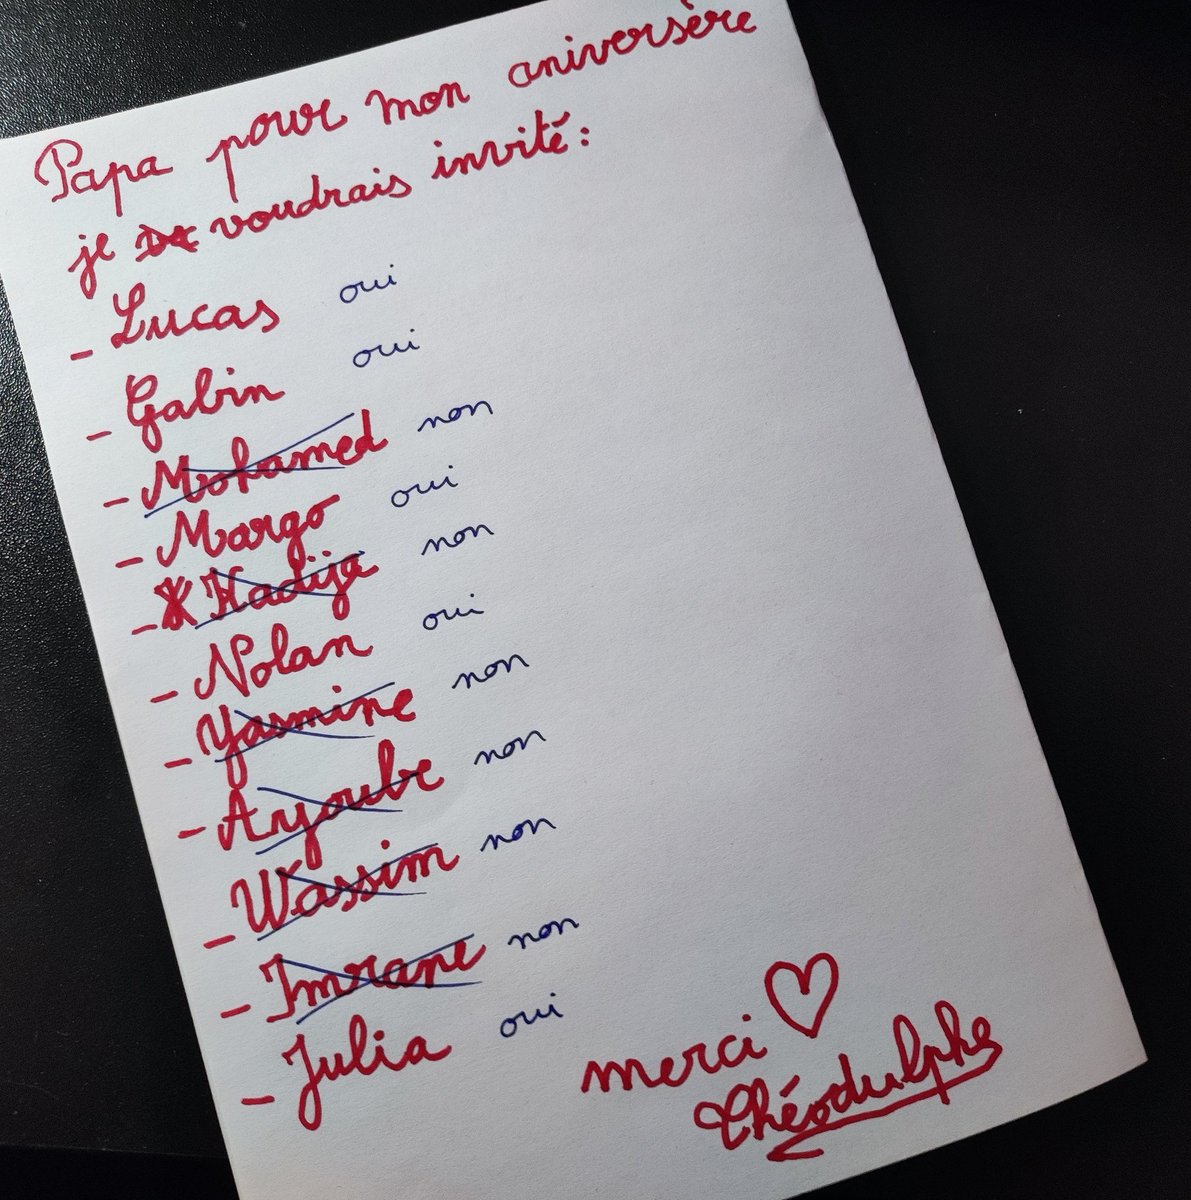 Papa pour mon aniversère
je voudrais invité :
- Lucas oui
- Gabin oui
- Mohamed non
- Margo oui
- Hadija non
- Nolan oui
- Yasmine non
- Ayoube non
- Wassim non
- Imrane non
- Julia oui
merci
Théodulphe